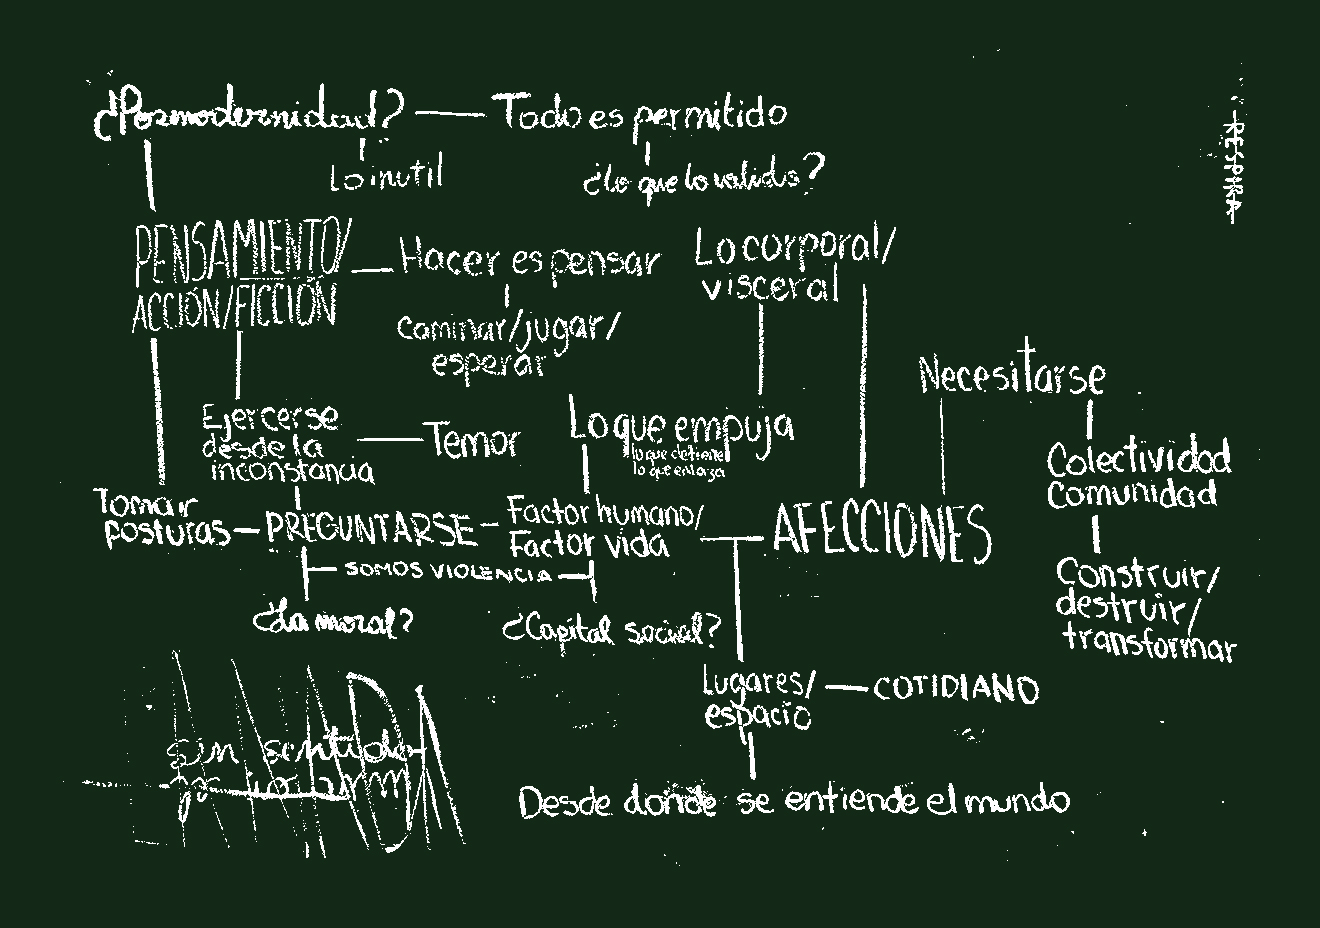 ¿Posmodernidad? — Todo es permitido
Lo inutil
¿lo que lo valida?
PENSAMIENTO/
ACCIÓN/FICCIÓN
Hacer es pensar
caminar/jugar/
esperar
Lo corporal/
visceral
Necesitarse
Colectividad
Comunidad
Construir/
destruir/
transformar
Ejercerse
desde la
inconstancia
Temor
Lo que empuja
lo que detiene
lo que enlaza
Tomar
posturas
PREGUNTARSE
Factor humano/
Factor vida
AFECCIONES
SOMOS VIOLENCIA
¿La moral?
¿Capital social?
Lugares/
espacio
COTIDIANO
Desde donde se entiende el mundo
NADA
sin sentido
RESPIRA